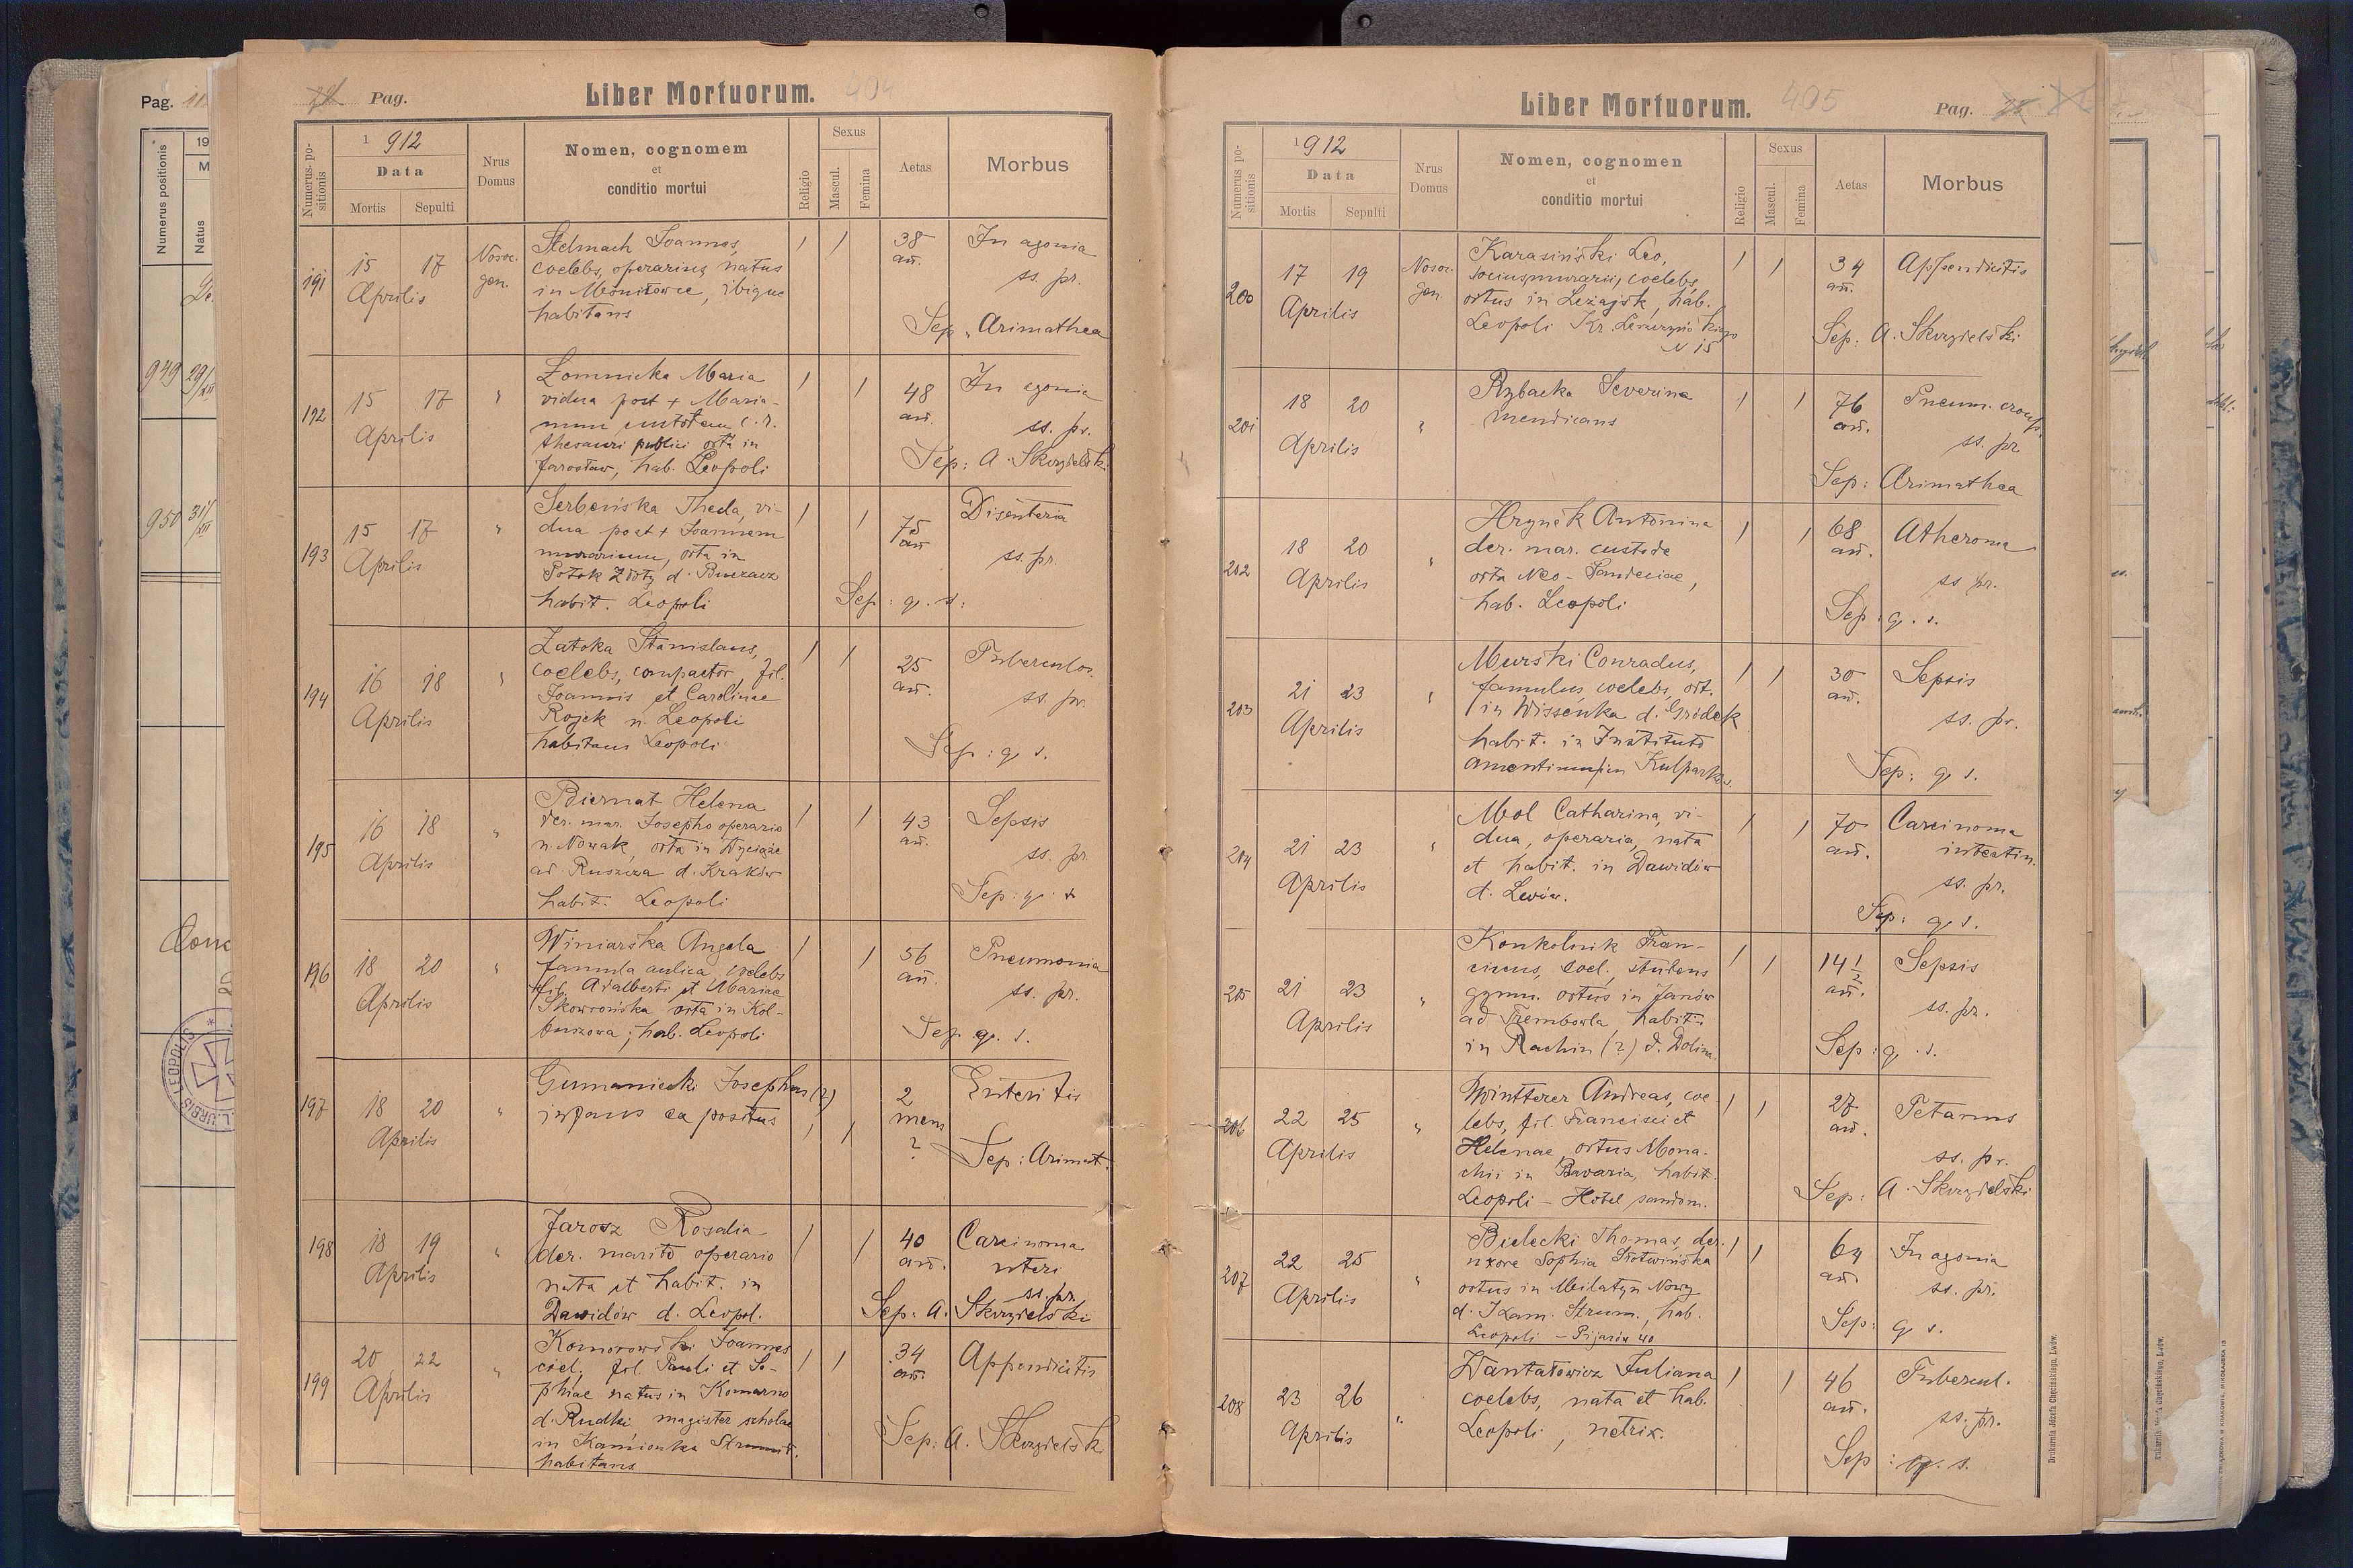 Pag.
Numerus positionis
Natus
949 29/XII
950 31/XII
Pag.
Liber Mortuorum. 404
Numerus positionis
1912
Data
Mortis Sepulti
Nrus Domus
Nomen, cognomem
et
conditio mortui
Religio
Sexus
Mascul.
Femina
Aetas
Morbus
191 15 17 Aprilis Nosoc. gen.
Stelmach Joannes,
coelebs, operarius, natus
in Moniłówce, ibique
habitans
1 1 38 an.
In agonia
ss. pr.
Sep. Arimathea
192 15 17 Aprilis "
Łomnicka Maria
vidua post + Maria-
num custodem c. r.
thesauri publici orta in
Jarosław, hab. Leopoli
1 1 48 an.
In agonia
ss. pr.
Sep: A. Skrzydelski
193 15 17 Aprilis "
Serbeńska Theda, vi-
dua post + Joannem
murarium, orta in
Potok Złoty d. Buczacz
habit. Leopoli
1 1 75 an.
Disenteria
ss. pr.
Sep: g. s.
194 16 18 Aprilis "
Zatoka Stanislaus,
coelebs, compactor, fil.
Joannis et Carolinae
Rojek n. Leopoli
habitans Leopoli
1 1 25 an.
Tuberculos.
ss. pr.
Sep: g. s.
195 16 18 Aprilis "
Biernat Helena
der. mar. Josepho operario
n. Nowak, orta in Wyciąże
ad Ruszcza d. Kraków
habit. Leopoli
1 1 43 an.
Sepsis
ss. pr.
Sep: g. s.
196 18 20 Aprilis "
Winiarska Angela
famula aulica, coelebs
fil. Adalberti et Mariae
Skowrońska orta in Kol-
buszowa; hab. Leopoli
1 1 56 an.
Pneumonia
ss. pr.
Sep. g. s.
197 18 20 Aprilis "
Gumaniecki Josephus (?)
infans expositus
1 1 2 mens ?
Enteritis
Sep: Arimat.
198 18 19 Aprilis "
Jarosz Rosalia
der. marito operario
nata et habit. in
Dawidów d. Leopol.
1 1 40 an.
Carcinoma
uteri
ss. pr.
Sep: A. Skrzydelski
199 20 22 Aprilis "
Komorowski Joannes
coel. fil. Pauli et So-
phiae natus in Komarno
d. Rudki magister scholae
in Kamionka Strumił.
habitans
1 1 34 an.
Appendicitis
Sep: A. Skrzydelski
Liber Mortuorum. 405
Pag.
Numerus positionis
1912
Data
Mortis Sepulti
Nrus Domus
Nomen, cognomen
et
conditio mortui
Religio
Sexus
Mascul.
Femina
Aetas
Morbus
200 17 19 Aprilis Nosoc. gen.
Karasiński Leo,
socius murarii, coelebs,
ortus in Leżajsk, hab.
Leopoli Kr. Leszczyńskiego
N 15
1 1 34 an.
Appendicitis
Sep: A. Skrzydelski
201 18 20 Aprilis "
Rybacka Severina
mendicans
1 1 76 an.
Pneum. croup.
ss. pr
Sep: Arimathea
202 18 20 Aprilis "
Hrynek Antonina
der. mar. custode
orta Neo-Sandeciae,
hab. Leopoli
1 1 68 an.
Atheroma
ss. pr.
Sep: g. s.
203 21 23 Aprilis "
Murski Conradus,
famulus, coelebs, ort.
in Wissenka d. Gródek
habit. in Instituto
amentium in Kulparków.
1 1 30 an.
Sepsis
ss. pr.
Sep: g. s.
204 21 23 Aprilis "
Mol Catharina, vi-
dua, operaria, nata
et habit. in Dawidów
d. Lwów.
1 1 70 an.
Carcinoma
intestin.
ss. pr.
Sep: g. s.
205 21 23 Aprilis "
Konkolnik Fran-
ciscus, coel., studens
gymn. ortus in Janów
ad Trembowla, habit.
in Rachin (?) d. Dolina.
1 1 14 1/2 an.
Sepsis
ss. pr.
Sep: g. s.
206 22 25 Aprilis "
Wintterer Andreas, coe-
lebs, fil. Francisci et
Helenae, ortus Mona-
chii in Bavaria, habit.
Leopoli - Hotel sandom.
1 1 27 an.
Tetanus
ss. pr.
Sep: A. Skrzydelski
207 22 25 Aprilis "
Bielecki Thomas, der.
uxore Sophia Słotwińska
ortus in Milatyn Nowy
d. Kam. Strum., hab.
Leopoli - Pijarów 40
1 1 64 an.
In agonia
ss. pr.
Sep: g. s.
208 23 26 Aprilis "
Dantałowicz Juliana
coelebs, nata et hab.
Leopoli, netrix.
1 1 46 an.
Tubercul.
ss. pr.
Sep: g. s.
Drukarnia Józefa Chęcińskiego, Lwów.